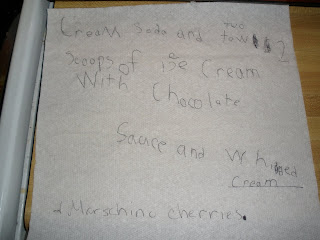 Cream Soda and two 2
Scoops of ice Cream
With Chocolate
Sauce and Whiped
Cream
d Marschino cherries.